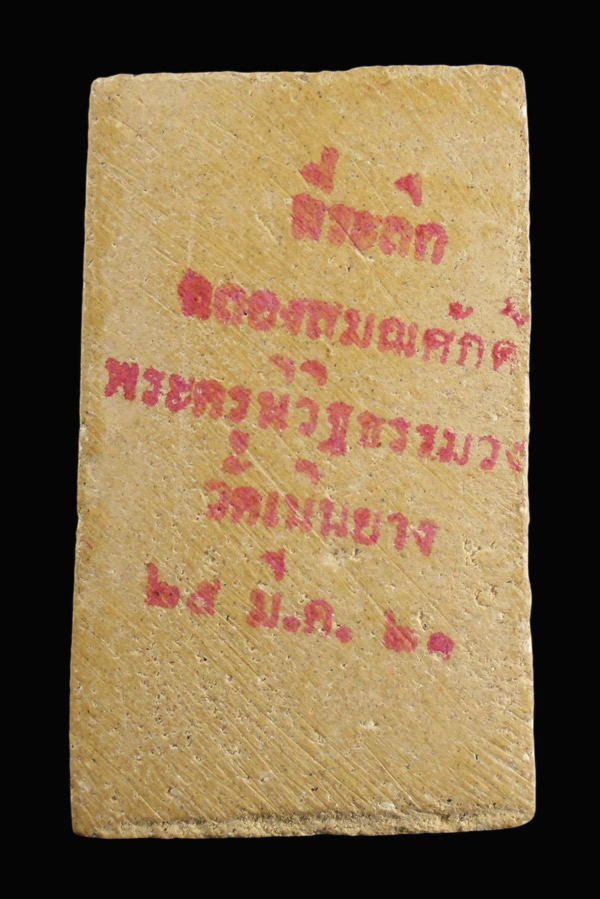 ที่ระลึก
ฉลองสมณศักดิ์
พระครูนิวิฐธรรมวง
วัดเนินยาง
๒๕ มี.ค. ๒๑